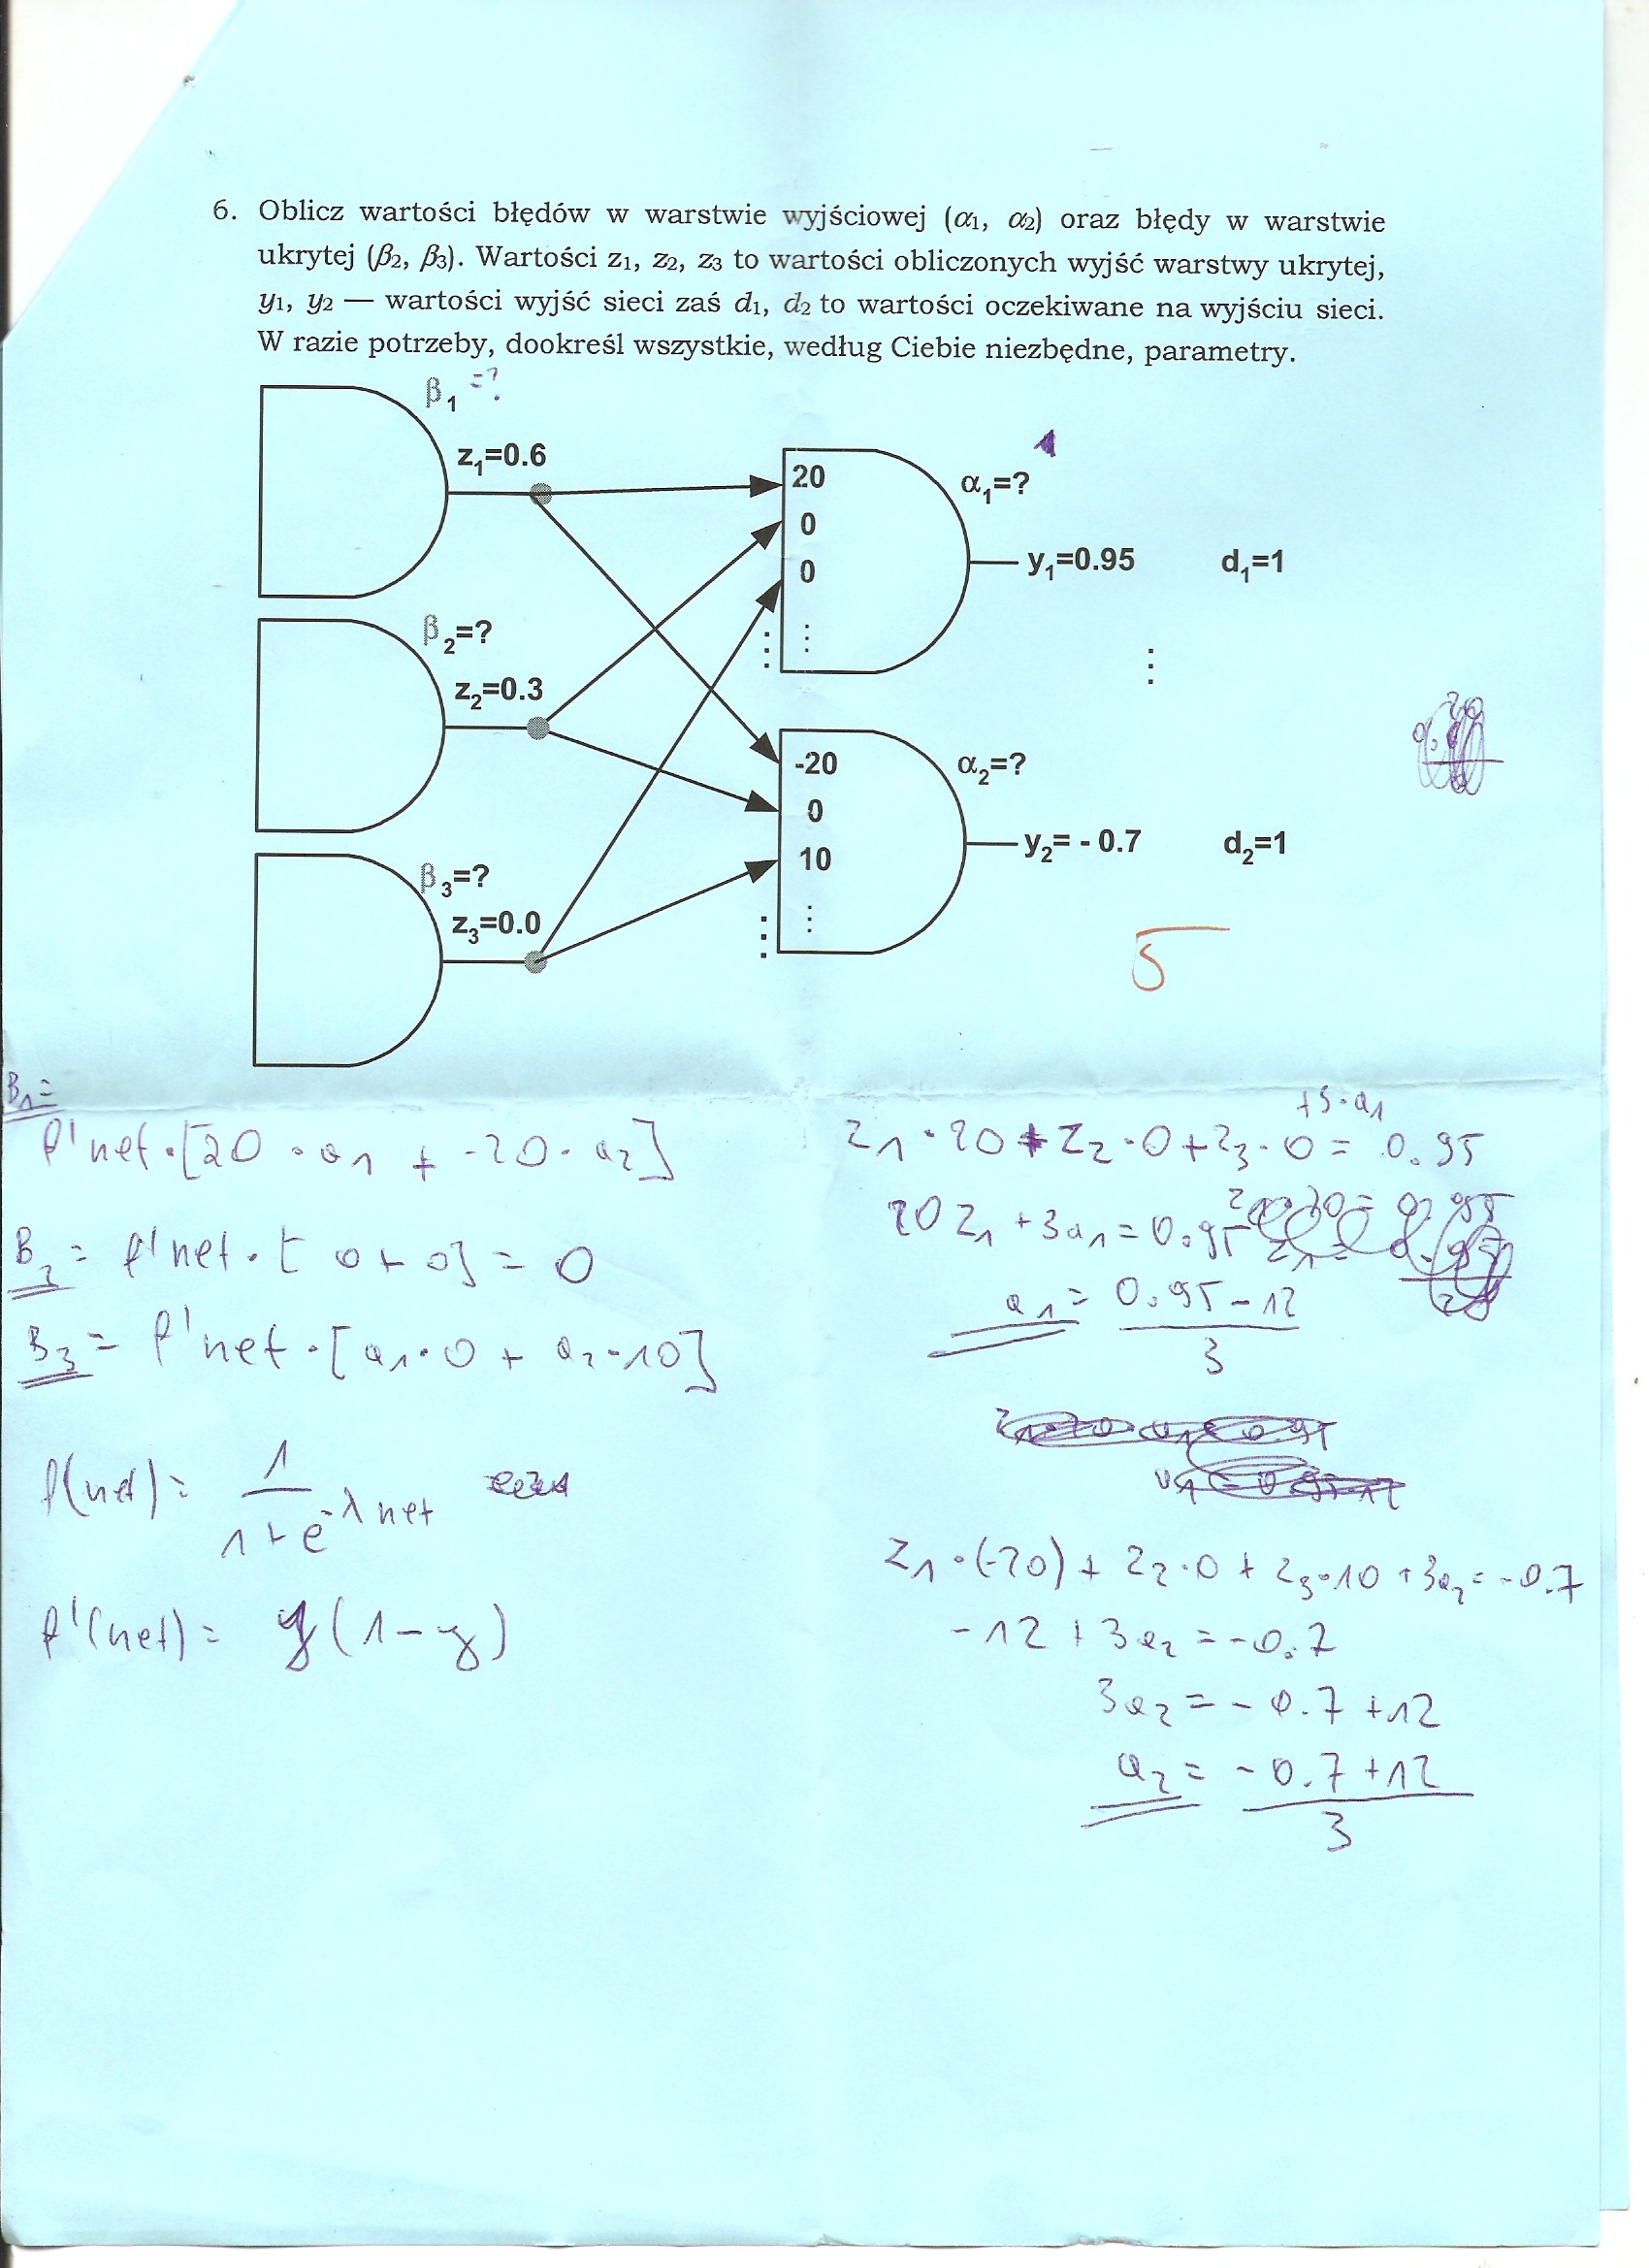 6. Oblicz wartości błędów w warstwie wyjściowej (α1, α2) oraz błędy w warstwie
ukrytej (β2, β3). Wartości z1, z2, z3 to wartości obliczonych wyjść warstwy ukrytej,
y1, y2 — wartości wyjść sieci zaś d1, d2 to wartości oczekiwane na wyjściu sieci.
W razie potrzeby, dookreśl wszystkie, według Ciebie niezbędne, parametry.
β1 =?
z1=0.6
20
0
0
⋮
⋮
α1=?
y1=0.95
d1=1
⋮
β2=?
z2=0.3
-20
0
10
⋮
⋮
α2=?
y2= - 0.7
d2=1
β3=?
z3=0.0
5
B1=
f' net·[20 · a1 + -20· a2]
B2 = f' net · [ 0 + 0] = 0
B3 = f' net · [ a1·0 + a2·10]
f(net) = 1 / 1+e^-λ net
f'(net) = y(1-y)
+3·a1
z1·20 + z2·0 + z3·0 = 0.95
20 z1 + 3a1 = 0.95
a1 = 0.95-12 / 3
z1·(-20) + z2·0 + z3·10 + 3a2 = -0.7
-12 + 3a2 = -0.7
3a2 = -0.7 +12
a2 = -0.7 +12 / 3